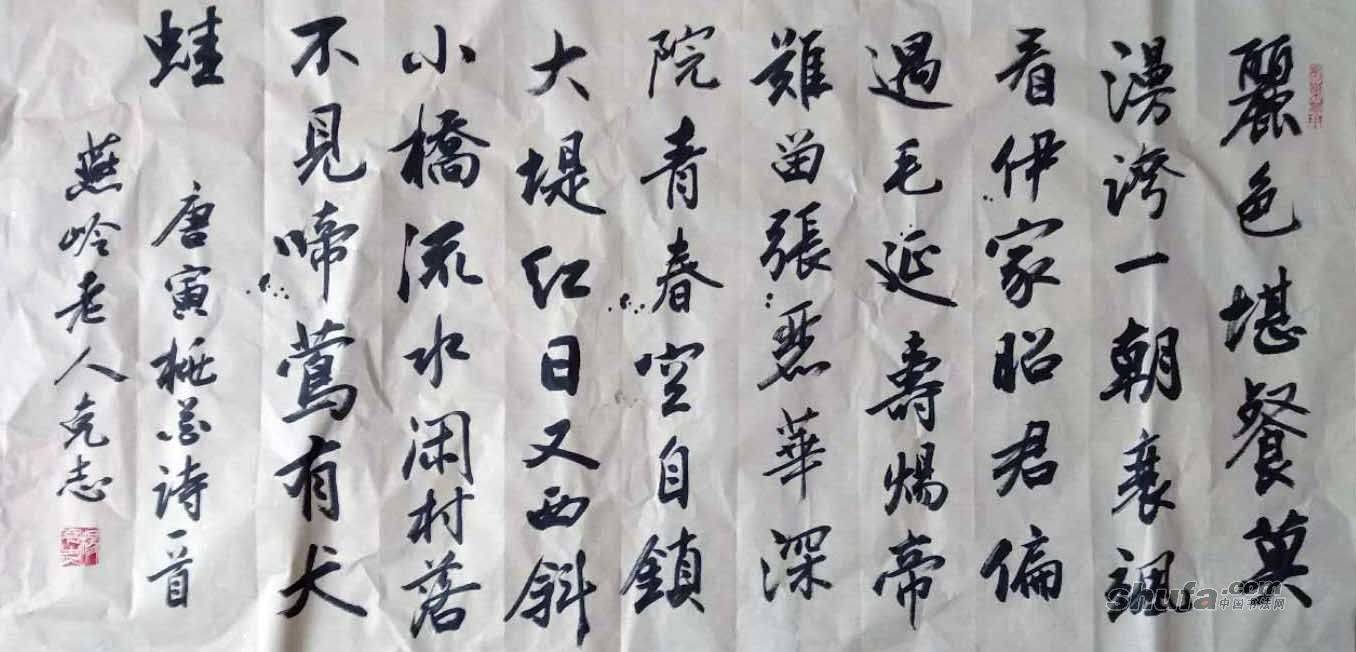 麗色堪餐莫
漫誇一朝衰調
看伊家昭君偏
遇毛延壽煬帝
難留張麗華深
院青春空自鎖
大堤紅日又西斜
小橋流水闲村落
不見啼鶯有犬
蛙
唐寅桃花詩一首
燕岭老人克志
shufa.com
中国书法网